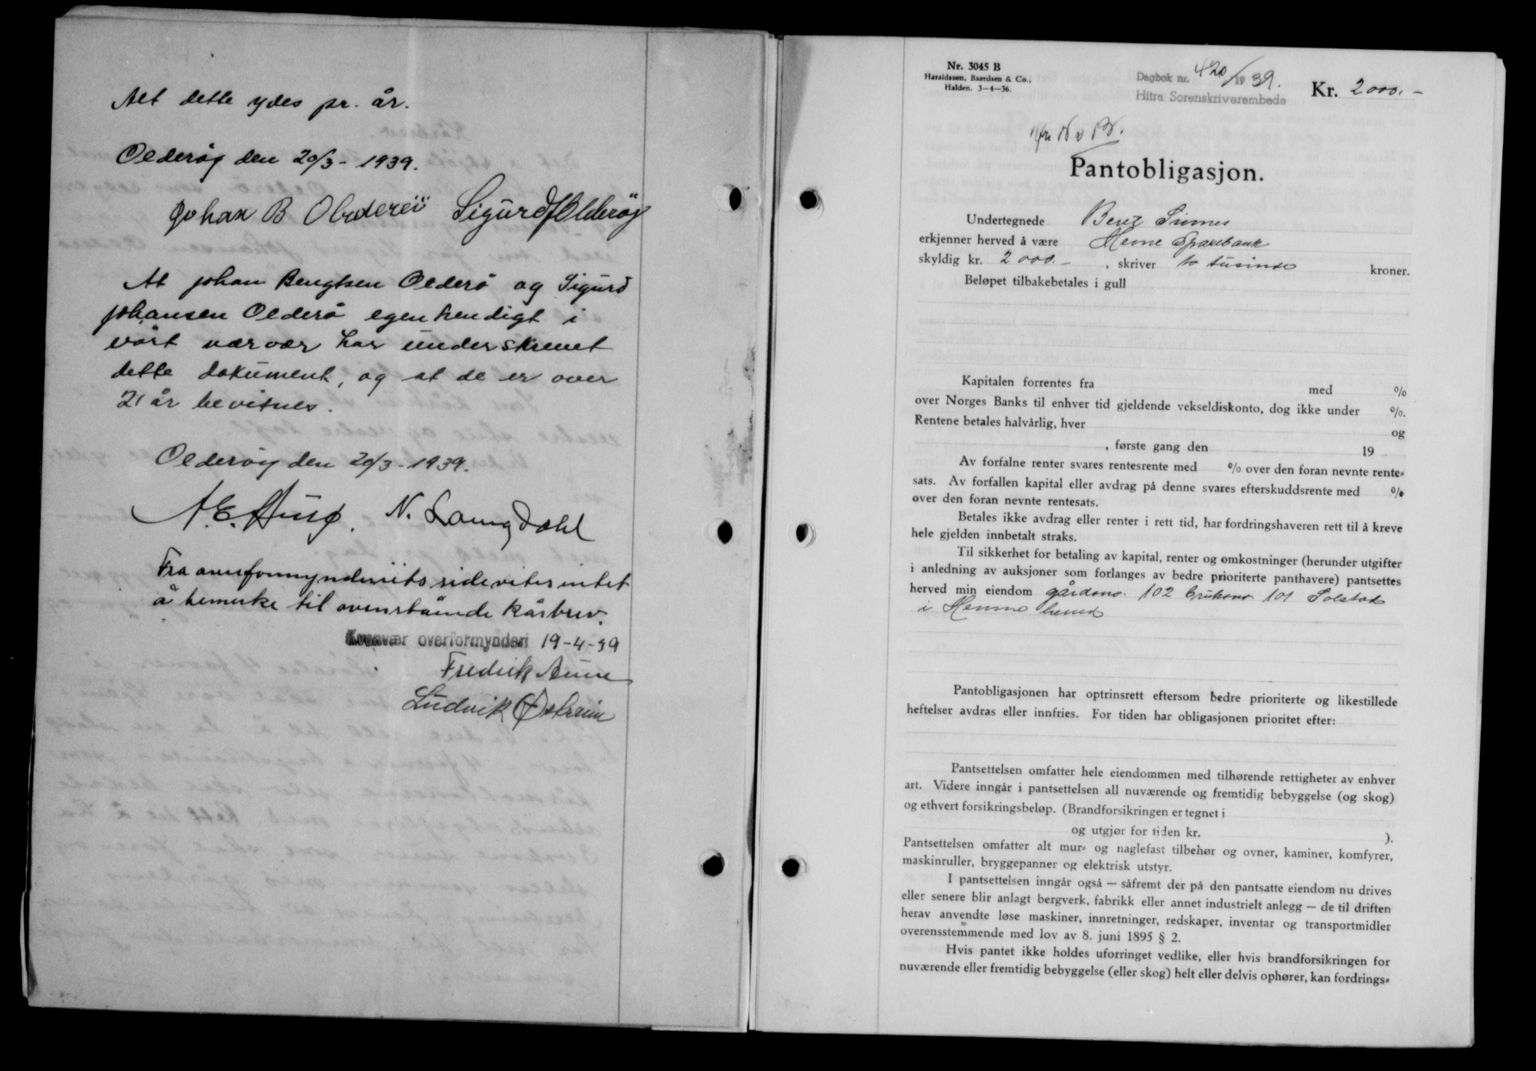 Alt dette ydes pr. år.
Olderøy den 20/3 - 1939.
Johan B Olderöi Sigurd J Olderøy
At Johan Bengtsen Olderö og Sigurd
Johansen Olderö egenhendigt i
vårt nærvær har underskrevet
dette dokument, og at de er over
21 år bevitnes.
Olderøy den 20/3 - 1939.
A. E. N. Langdahl
Fra overformynderiets side vites intet
å bemerke til ovenstående kårbrev.
overformynderi 19-4-39
Fredrik Aune
Ludvik
Nr. 3045 B
Haraldssen, Baardsen & Co.,
Halden. 3-4-36.
Dagbok nr. 420/1939.
Hitra Sorenskriverembede
Kr. 2000.-
Pantobligasjon.
Undertegnede Bent Sinnes
erkjenner herved å være Hemne Sparebank
skyldig kr. 2000.- , skriver to tusinde kroner.
Beløpet tilbakebetales i gull
Kapitalen forrentes fra med %
over Norges Banks til enhver tid gjeldende vekseldiskonto, dog ikke under %.
Rentene betales halvårlig, hver og
, første gang den 19
Av forfalne renter svares rentesrente med % over den foran nevnte rente-
sats. Av forfallen kapital eller avdrag på denne svares efterskuddsrente med %
over den foran nevnte rentesats.
Betales ikke avdrag eller renter i rett tid, har fordringshaveren rett til å kreve
hele gjelden innbetalt straks.
Til sikkerhet for betaling av kapital, renter og omkostninger (herunder utgifter
i anledning av auksjoner som forlanges av bedre prioriterte panthavere) pantsettes
herved min eiendom gårdsno. 102 bruksno. 101 Solstad
i Hemne herred
Pantobligasjonen har optrinsrett eftersom bedre prioriterte og likestillede
heftelser avdras eller innfries. For tiden har obligasjonen prioritet efter:
Pantsettelsen omfatter hele eiendommen med tilhørende rettigheter av enhver
art. Videre inngår i pantsettelsen all nuværende og fremtidig bebyggelse (og skog)
og ethvert forsikringsbeløp. (Brandforsikringen er tegnet i
og utgjør for tiden kr. ).
Pantsettelsen omfatter alt mur- og naglefast tilbehør og ovner, kaminer, komfyrer,
maskinruller, bryggepanner og elektrisk utstyr.
I pantsettelsen inngår også — såfremt der på den pantsatte eiendom nu drives
eller senere blir anlagt bergverk, fabrikk eller annet industrielt anlegg — de til driften
herav anvendte løse maskiner, innretninger, redskaper, inventar og transportmidler
overensstemmende med lov av 8. juni 1895 § 2.
Hvis pantet ikke holdes uforringet vedlike, eller hvis brandforsikringen for
nuværende eller fremtidig bebyggelse (eller skog) helt eller delvis ophører, kan fordrings-